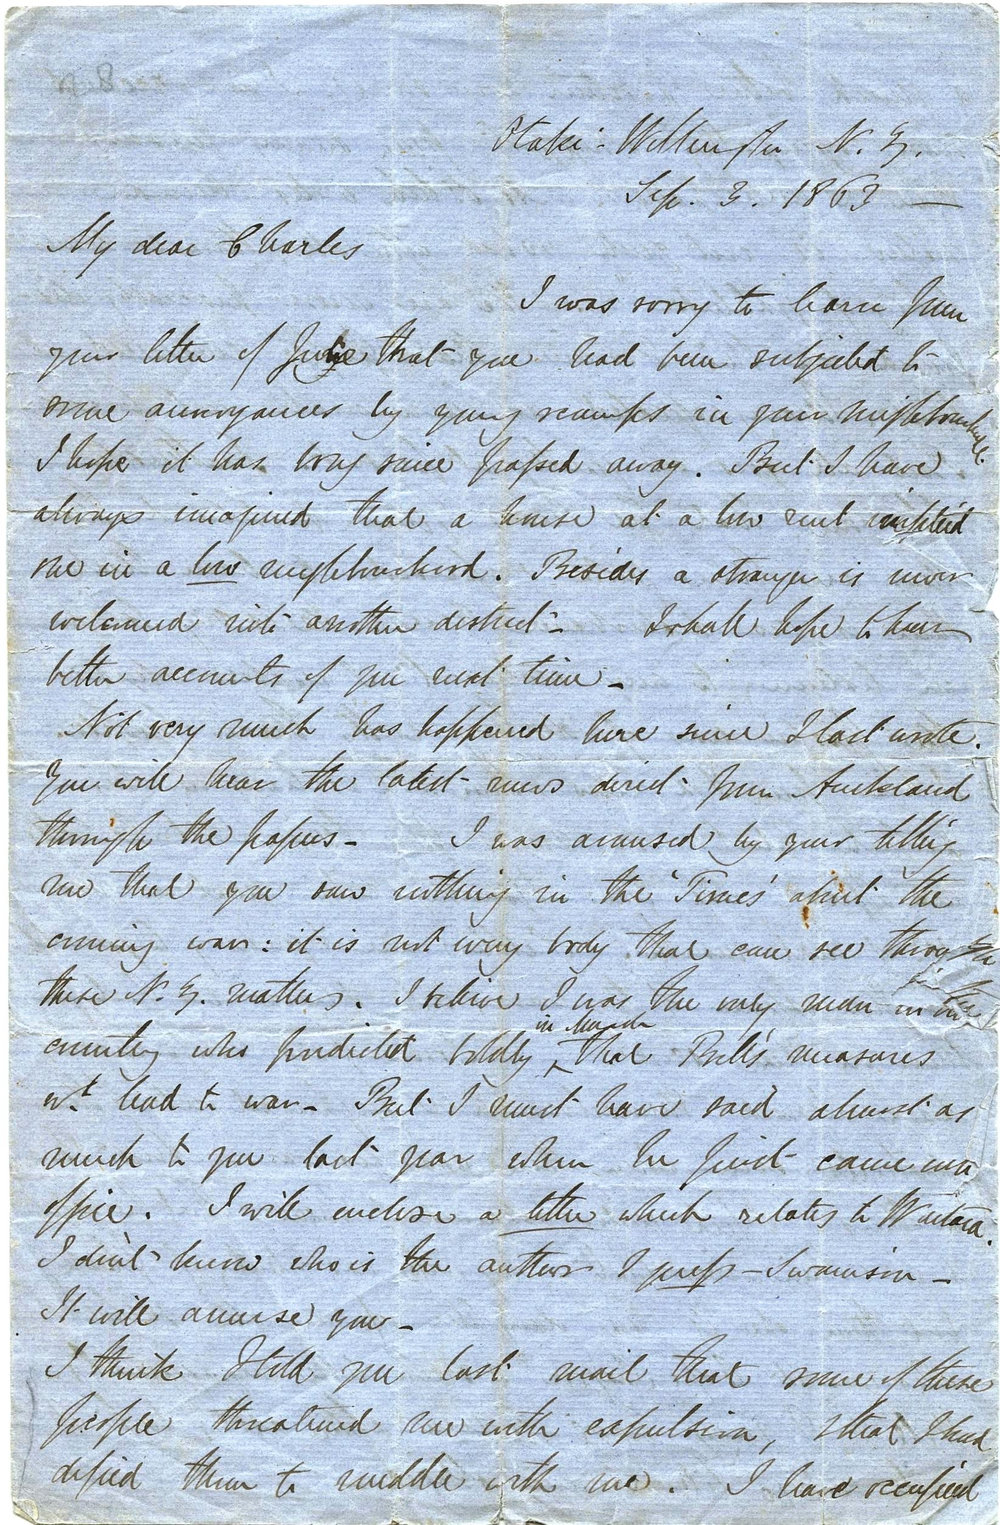 Otaki: Wellington N. Z.
Sep. 3. 1863 —
My dear Charles
I was sorry to learn from
your letter of June that you had been subjected to
some annoyances by young scamps in your neighbourhood.
I hope it has long since passed away. But I have
always imagined that a house at a low rent implied
one in a low neighbourhood. Besides a stranger is never
welcomed into another district - I shall hope to hear
better accounts of you next time -
Not very much has happened here since I last wrote.
You will hear the latest news direct from Auckland
through the papers - I was amused by your telling
me that you saw nothing in the 'Times' about the
coming war: it is not every body that can see through
these N. Z. matters. I believe I was the only man in the
in March
country who predicted boldly ^ that Bell's measures
wd. lead to war - But I must have said almost as
much to you last year when he first came into
office. I will enclose a letter which relates to Waitara.
I don't know who is the author I guess - Swainson -
It will amuse you -
I think I told you last mail that some of these
people threatened me with expulsion, & that I had
defied them to meddle with me. I have occupied